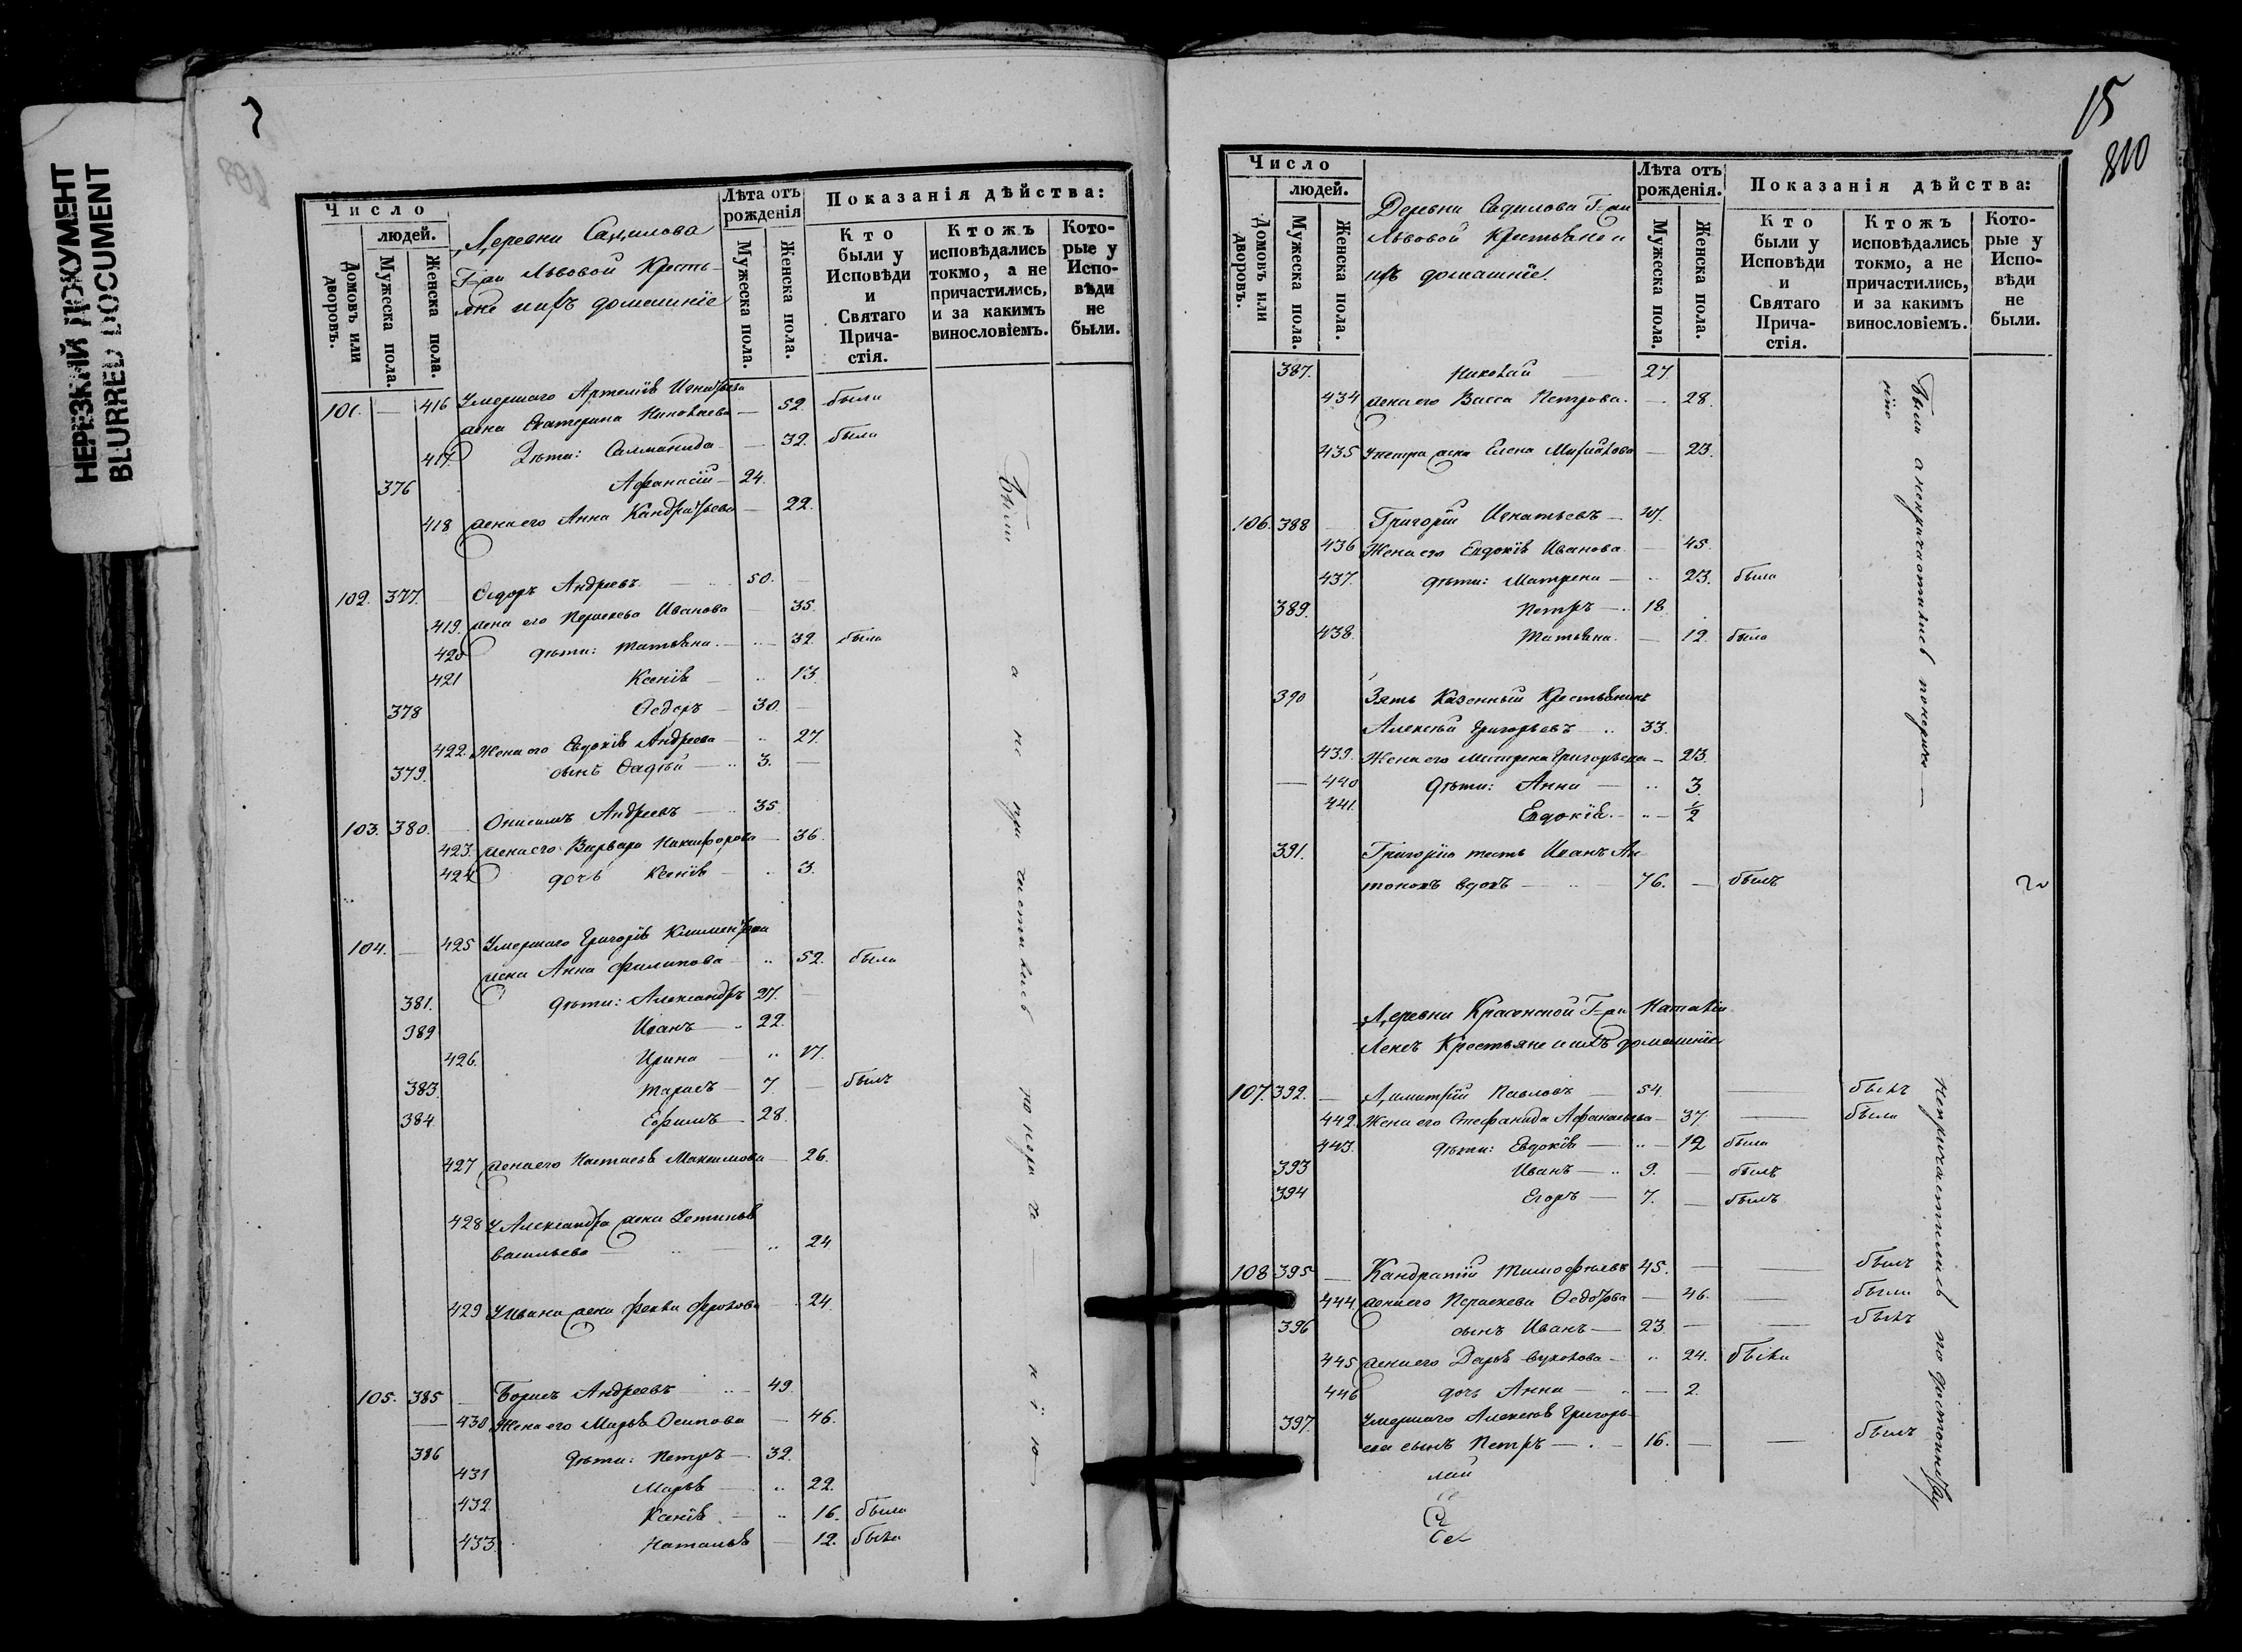 НЕРЕЗКИЙ ДОКУМЕНТ
BLURRED DOCUMENT
Число
людей.
Домовъ или дворовъ.
Мужеска пола.
Женска пола.
Деревни Садилова
Г=жи Львовой Кресть-
яне и ихъ домашніе
Лѣта отъ рожденія
Мужеска пола.
Женска пола.
Показанія дѣйства:
Кто были у Исповѣди и Святаго Причастія.
Ктожъ исповѣдались токмо, а не причастились, и за какимъ винословіемъ.
Которые у Исповѣди не были.
101. — 416 Умершаго Артемія Игнатьева
жена Екатерина Николаева — 52. была
417 Дѣти: Саломанида — 32. была
376 Афанасій — 24.
418 жена его Анна Кандратьева — 22.
102. 377. Ѳедоръ Андреевъ 50.
419. жена его Параскева Иванова 35.
420 дѣти: Татьяна — 32. была
421 Ксенія — 13.
378 Ѳедоръ — 30.
422. Жена его Евдокія Андреева — 27.
379. сынъ Фадѣй — 3.
103. 380. Онисимъ Андреевъ — 35.
423. жена его Варвара Никифорова — 36.
424 дочь Ксенія — 3.
104. — 425 Умершаго Григорія Климентьева
жена Анна Филипова 52. была
381. дѣти: Александръ 27.
382 Иванъ — 22.
426. Ирина — 17.
383. Тарасъ — 7. — былъ
384. Ефимъ — 28.
427 жена его Настасья Максимова — 26.
428 У Александра жена Устинья
Васильева — 24
429 У Ивана жена Фекла Фролова 24.
105. 385 Борисъ Андреевъ 49.
430 Жена его Марья Осипова — 46.
386 дѣти: Петръ — 32.
431 Марья — 22.
432 Ксенія — 16. была
433. Наталья 12. была
Были а не причастились по нера де нію
15
810
Число
людей.
Домовъ или дворовъ.
Мужеска пола.
Женска пола.
Деревни Садилова Г=жи
Львовой Крестьяне и
ихъ домашніе.
Лѣта отъ рожденія.
Мужеска пола.
Женска пола.
Показанія дѣйства:
Кто были у Исповѣди и Святаго Причастія.
Ктожъ исповѣдались токмо, а не причастились, и за какимъ винословіемъ.
Которые у Исповѣди не были.
387. Николай — 27.
434 жена его Васса Петрова. — 28.
435 У Петра жена Елена Михайлова — 23.
106. 388 Григорій Игнатьевъ — 47.
436 Жена его Евдокія Иванова. — 45.
437. дѣти: Матрена — 23. была
389. Петръ — 18.
438. Татьяна. — 12. была
390 Зять Казенный Крестьянинъ
Алексѣй Григорьевъ 33.
439. Жена его Матрена Григорьева — 23.
440 дѣти: Анна — 3.
441. Евдокія. — 1/2
391. Григорія тесть Иванъ Ан-
тоновъ вдовъ — 76. — былъ
Были а непричастились понерадѣ-
нію
Деревни Красенской Г=жи Наталіи
Крестьяне и ихъ домашніе
107. 392. — Димитрій Павловъ — 54. — былъ
442. Жена его Стефанида Афанасьева — 37. — была
443. дѣти: Евдокія — 12 была
393 Иванъ — 9. — былъ
394 Егоръ — 7. — былъ
108 395 — Кандратій Тимофѣевъ 45. — былъ
444. жена его Параскева Ѳедотова — 46. — была
396 сынъ Иванъ — 23. — былъ
445 жена его Дарья Вуколова — 24. была
446 дочь Анна — 2.
397. Умершаго Алексѣя Григорь-
ева сынъ Петръ — 16. — былъ
непричастились по